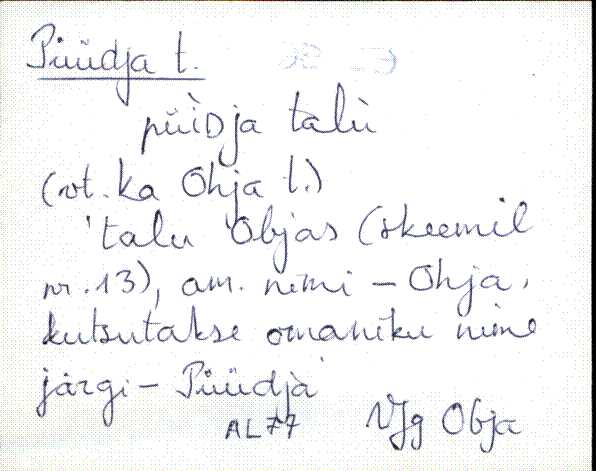 Püüdja t.
püìDja talù
(vt. ka Ohja t.)
'talu 'Objas (skeemil
nr. 13), am. nimi – Ohja,
kutsutakse omaniku nime
järgi – Püüdja
AL77 VJg Obja